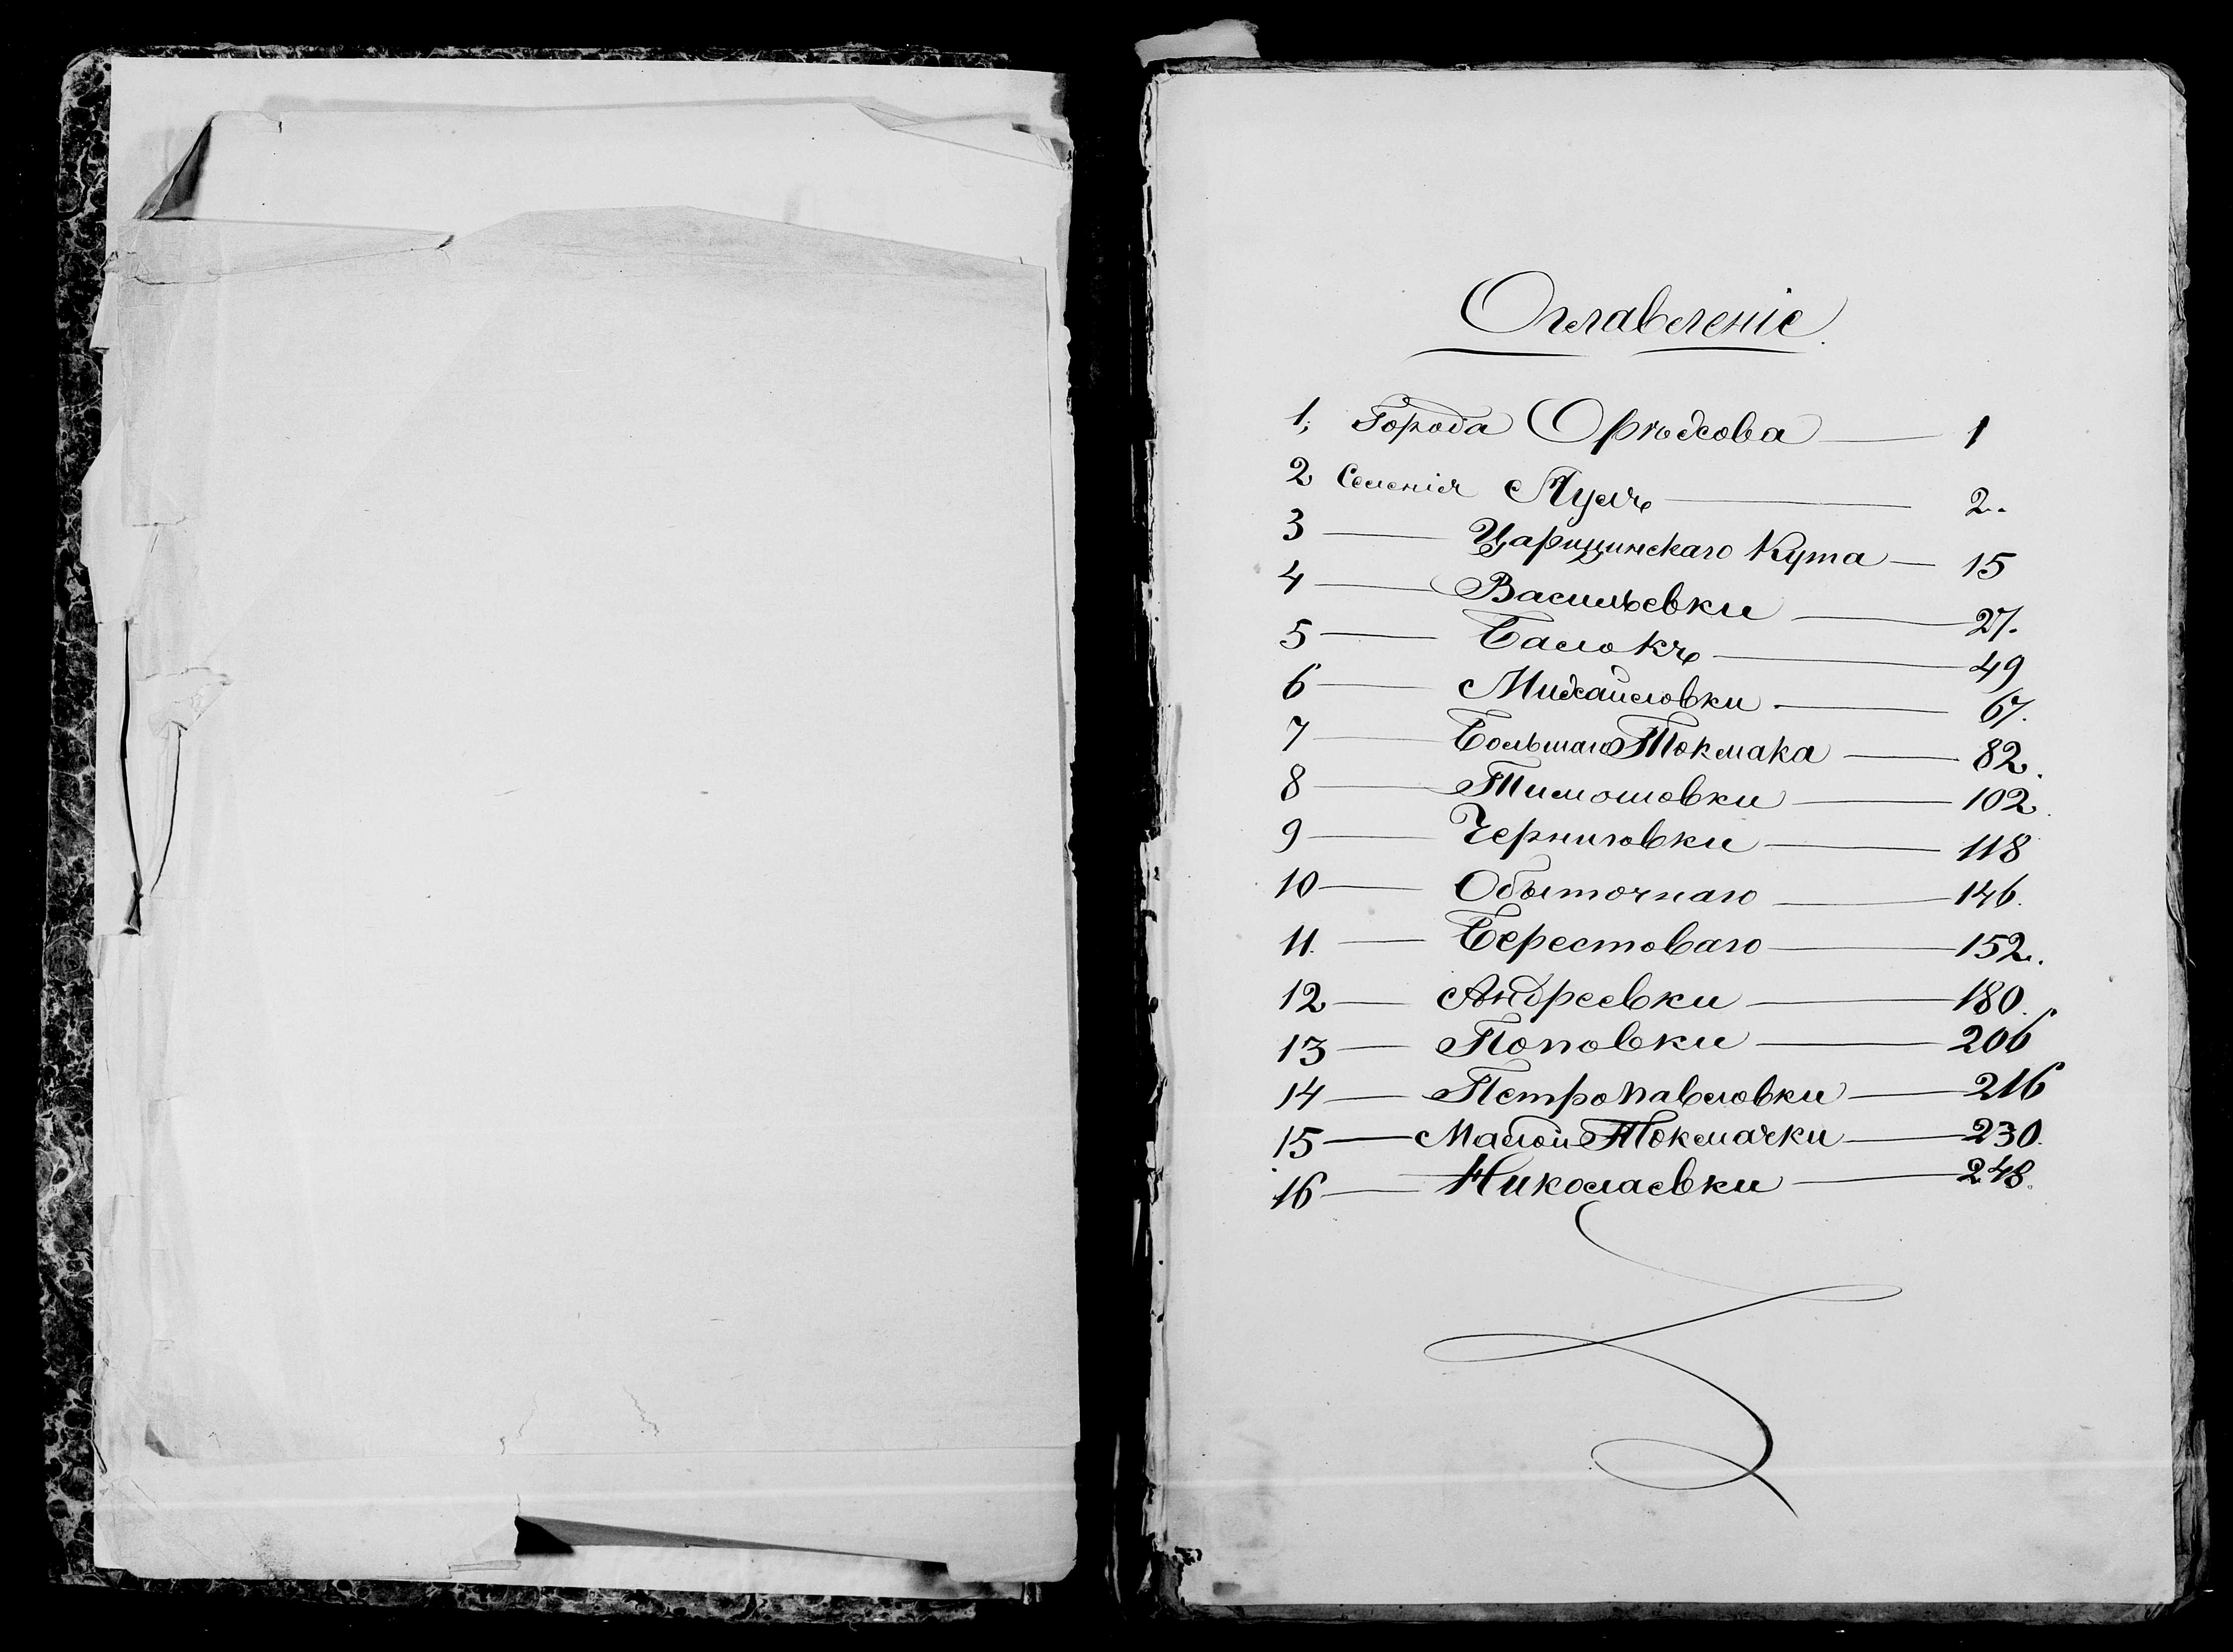 Оглавленіе.
1, Города Орѣхова — 1
2 Селенія Лугъ — 2.
3 — Царицинскаго Кута — 15
4 — Васильевки — 27.
5 — Балокъ — 49
6 — Михайловки — 67.
7 — Большаго Токмака — 82.
8 — Тимошовки — 102.
9 — Черниговки — 118
10 — Обыточнаго — 146.
11. — Берестоваго — 152.
12 — Андреевки — 180.
13 — Поповки — 206
14 — Петропавловки — 216
15 — Малой Токмачки — 230.
16 — Николаевки — 248.